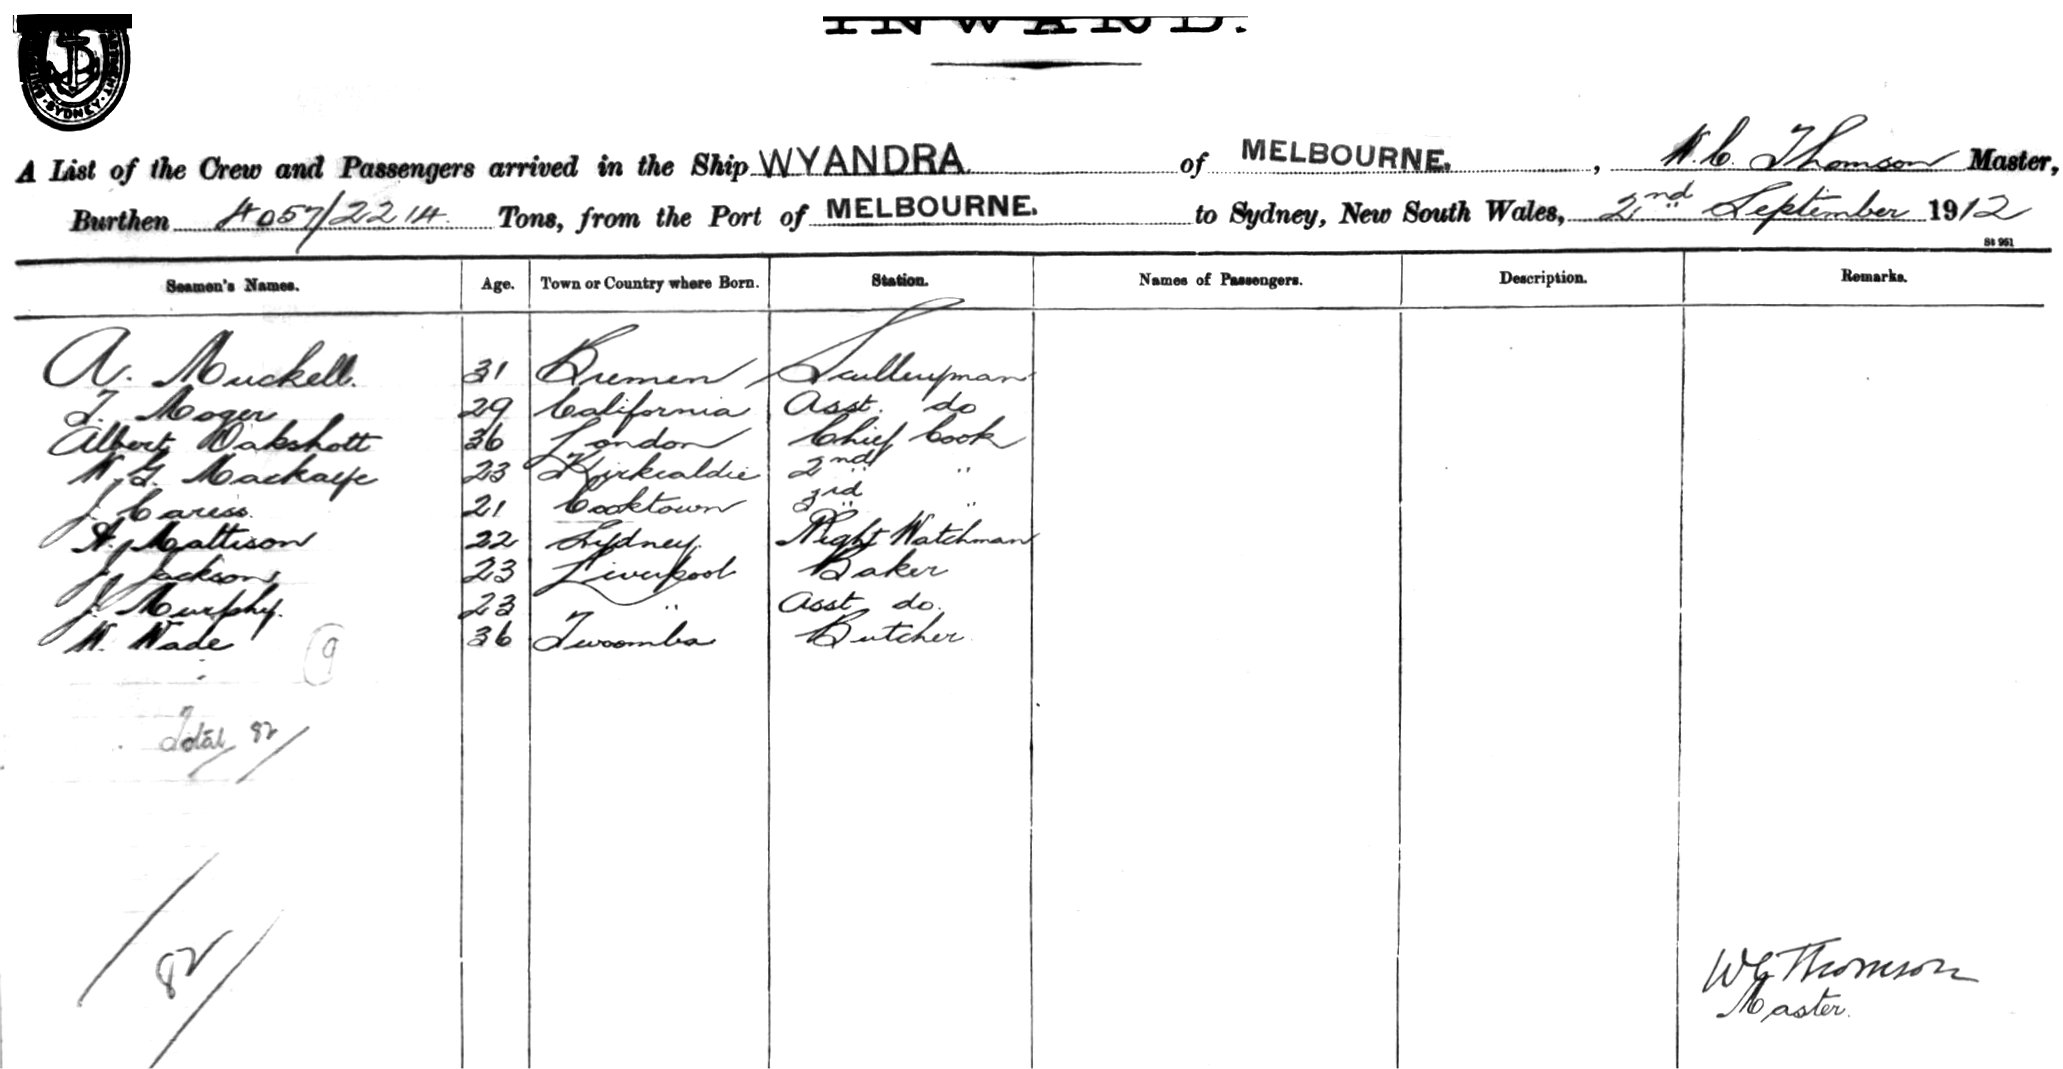 INWARD.
SYDNEY
A List of the Crew and Passengers arrived in the Ship WYANDRA of MELBOURNE, W. C. Thomson Master,
Burthen 4057/2214 Tons, from the Port of MELBOURNE. to Sydney, New South Wales, 2nd September 1912
St 961
Seamen's Names. Age. Town or Country where Born. Station. Names of Passengers. Description. Remarks.
A. Muckell. 31 Bremen Sculleryman
T. Moger 29 California Asst. do
Albert Oakshott 36 London Chief Cook
W. G. Mackaye 23 Kirkcaldie 2nd "
J. Caress. 21 Cooktown 3rd "
A. Mattison 22 Sydney. Night Watchman
J. Jackson 23 Liverpool Baker
J. Murphy. 23 " Asst do.
W. Wade 36 Twoomba Butcher
9
Total 82
82
W C Thomson
Master.